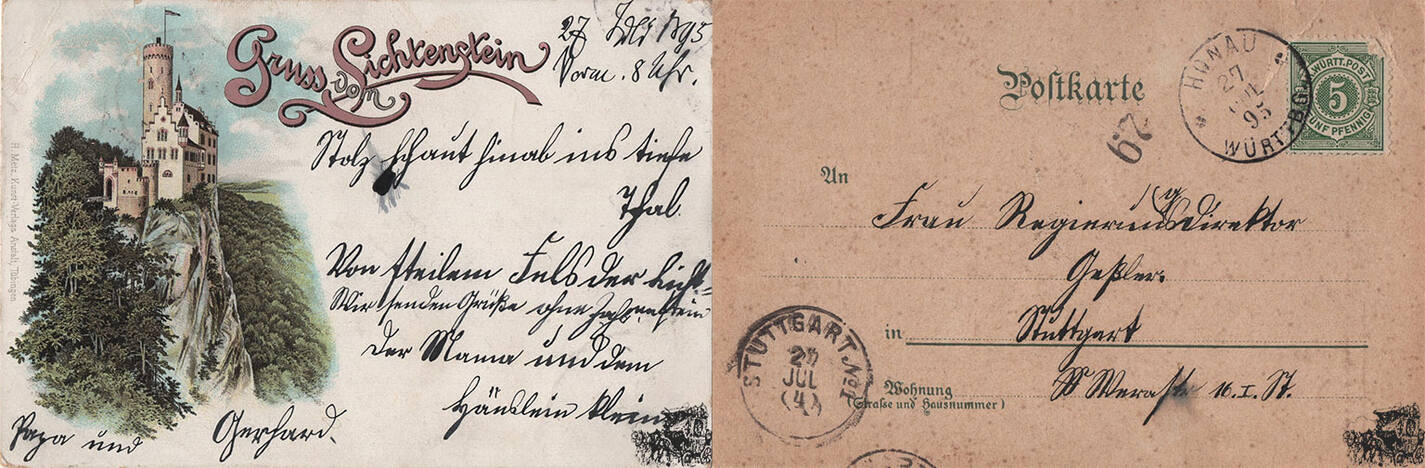 Gruss vom Lichtenstein
27 Juli 1895
Vorm. 8 Uhr.
Stolz schaut hinab ins tiefe
Thal.
Von steilem Fels der Licht-
enstein
Wir senden Grüße ohne Zahl
Der Mama und dem
Häuslein klein
Papa und Gerhard.
H. Metz, Kunst-Verlags-Anstalt, Tübingen
Postkarte
HONAU
27
JUL
95
WÜRTTBG
K. WÜRTT. POST
5
FÜNF PFENNIG
29
An
Frau Regierungsdirektor
Geßler.
in Stuttgart
Wohnung
(Straße und Hausnummer)
Werastr 16. I. St.
STUTTGART No 1
27
JUL